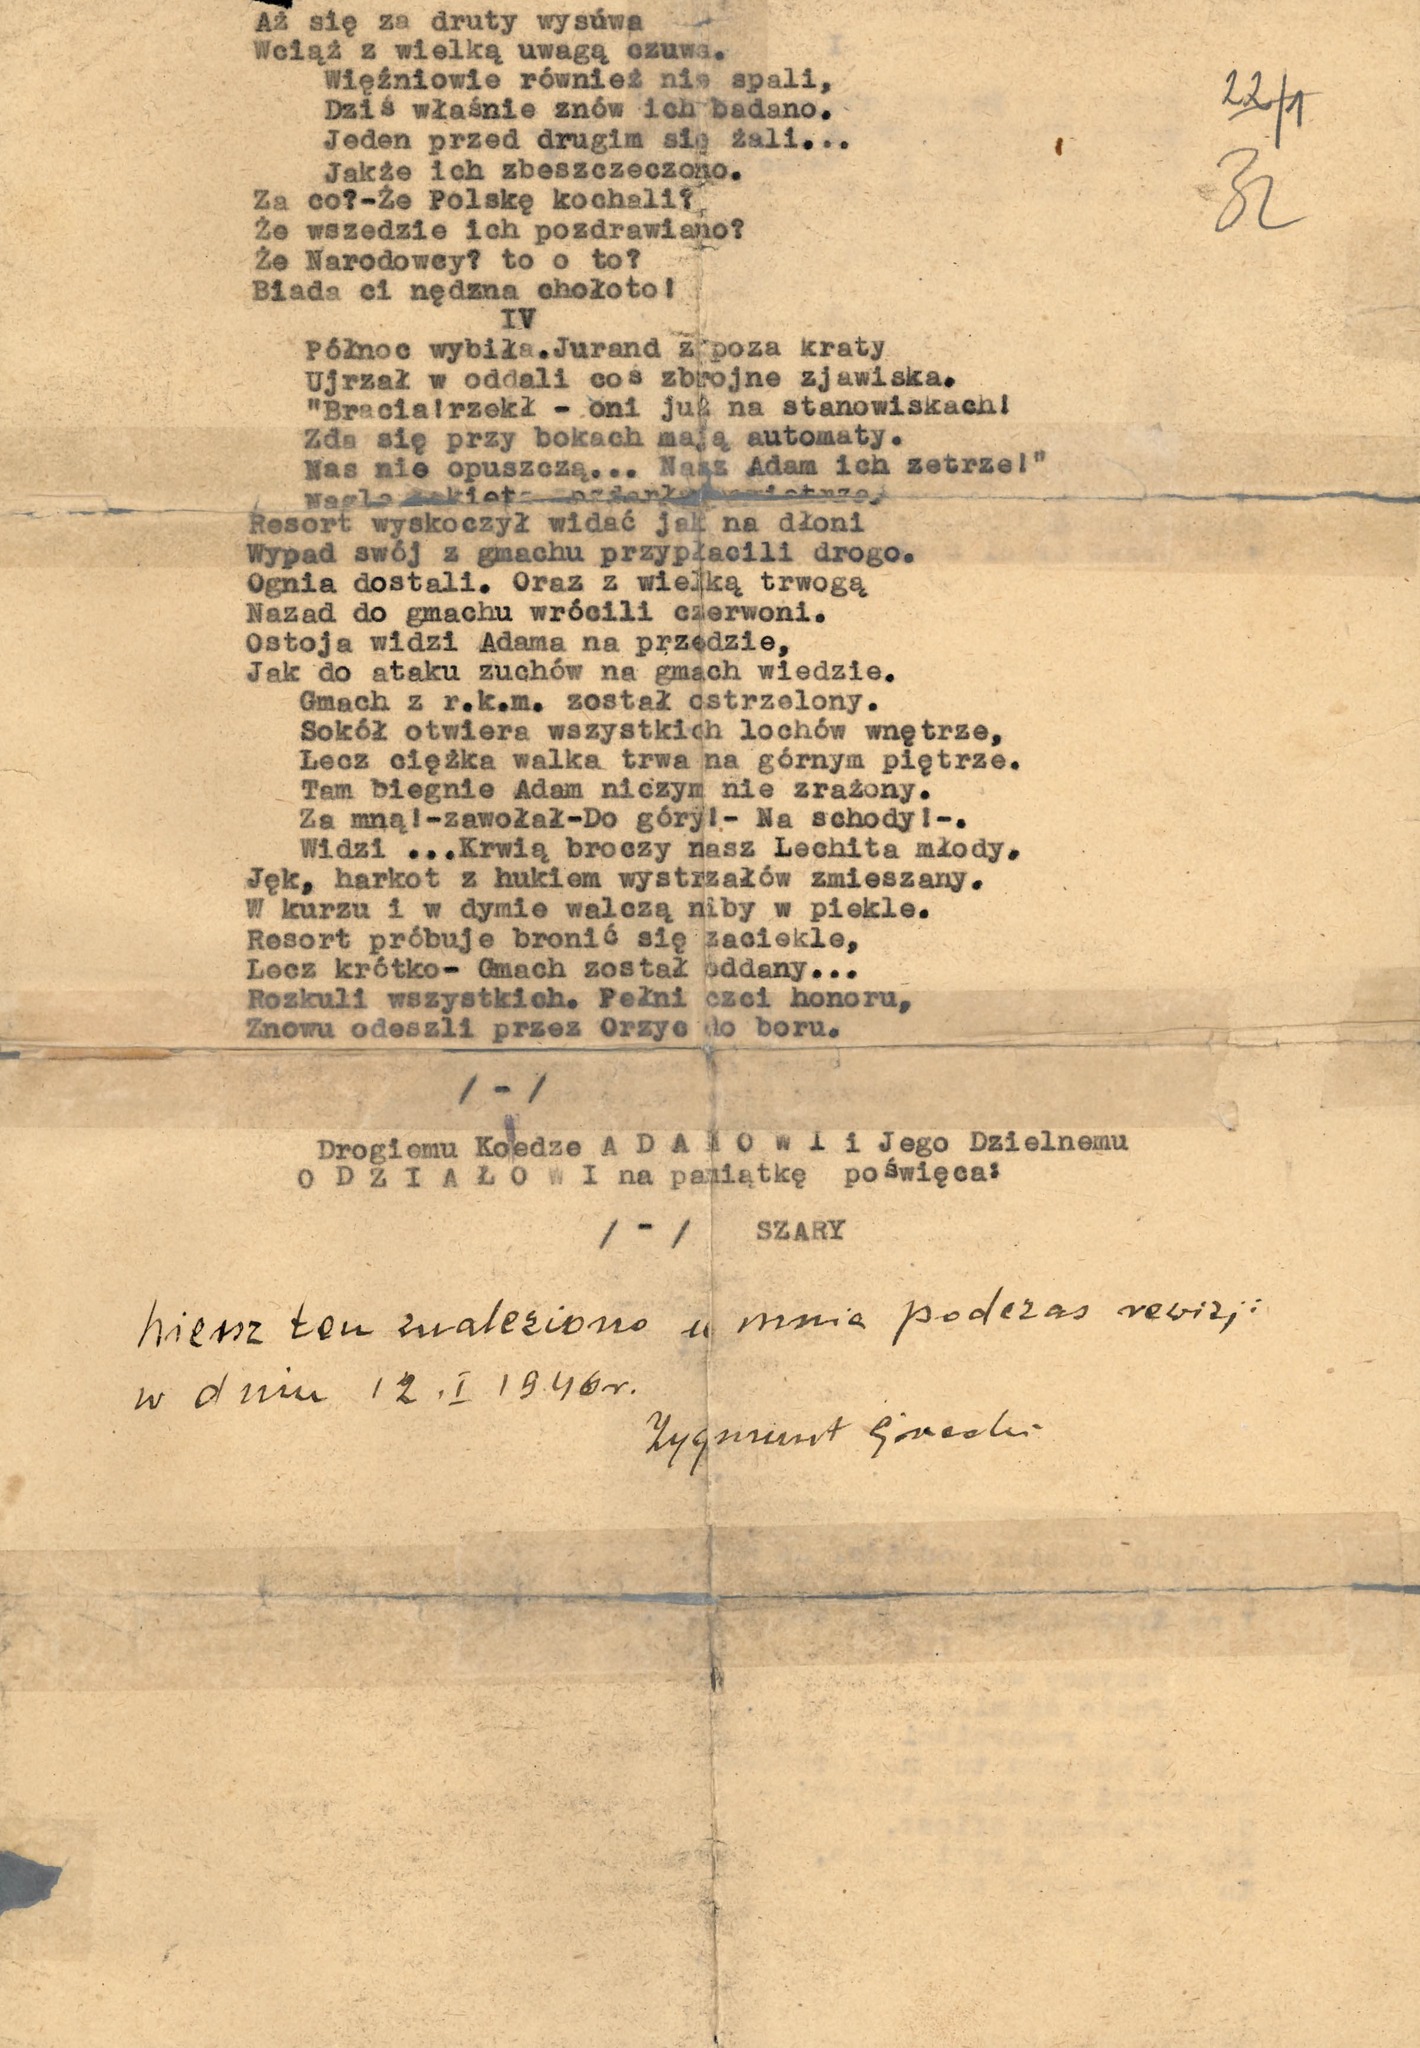 Aż się za druty wysúwa
Wciąż z wielką uwagą czuwa.
Więźniowie również nie spali,
Dziś właśnie znów ich badano.
Jeden przed drugim się żali...
Jakże ich zbeszczeczono.
Za co?-Że Polskę kochali?
Że wszedzie ich pozdrawiano?
Że Narodowcy? to o to?
Biada ci nędzna chołoto!
IV
Północ wybiła.Jurand z poza kraty
Ujrzał w oddali coś zbrojne zjawiska.
"Bracia!rzekł - oni już na stanowiskach!
Zda się przy bokach mają automaty.
Nas nie opuszczą... Nasz Adam ich zetrze!"
Nagle
Resort wyskoczył widać jak na dłoni
Wypad swój z gmachu przypłacili drogo.
Ognia dostali. Oraz z wielką trwogą
Nazad do gmachu wrócili czerwoni.
Ostoja widzi Adama na przedzie,
Jak do ataku zuchów na gmach wiedzie.
Gmach z r.k.m. został ostrzelony.
Sokół otwiera wszystkich lochów wnętrze,
Lecz ciężka walka trwa na górnym piętrze.
Tam biegnie Adam niczym nie zrażony.
Za mną!-zawołał-Do góry!- Na schody!-.
Widzi ...Krwią broczy nasz Lechita młody.
Jęk, harkot z hukiem wystrzałów zmieszany.
W kurzu i w dymie walczą niby w piekle.
Resort próbuje bronić się zaciekle,
Lecz krótko- Gmach został oddany...
Rozkuli wszystkich. Pełni czci honoru,
Znowu odeszli przez Orzyc do boru.
/ - /
Drogiemu Koledze A D A M O W I i Jego Dzielnemu
O D Z I A Ł O W I na pamiątkę poświęca:
/ - / SZARY
wiersz ten znaleziono u mnie podczas rewizji
w dniu 12.I 1946r.
Zygmunt
22/1
32